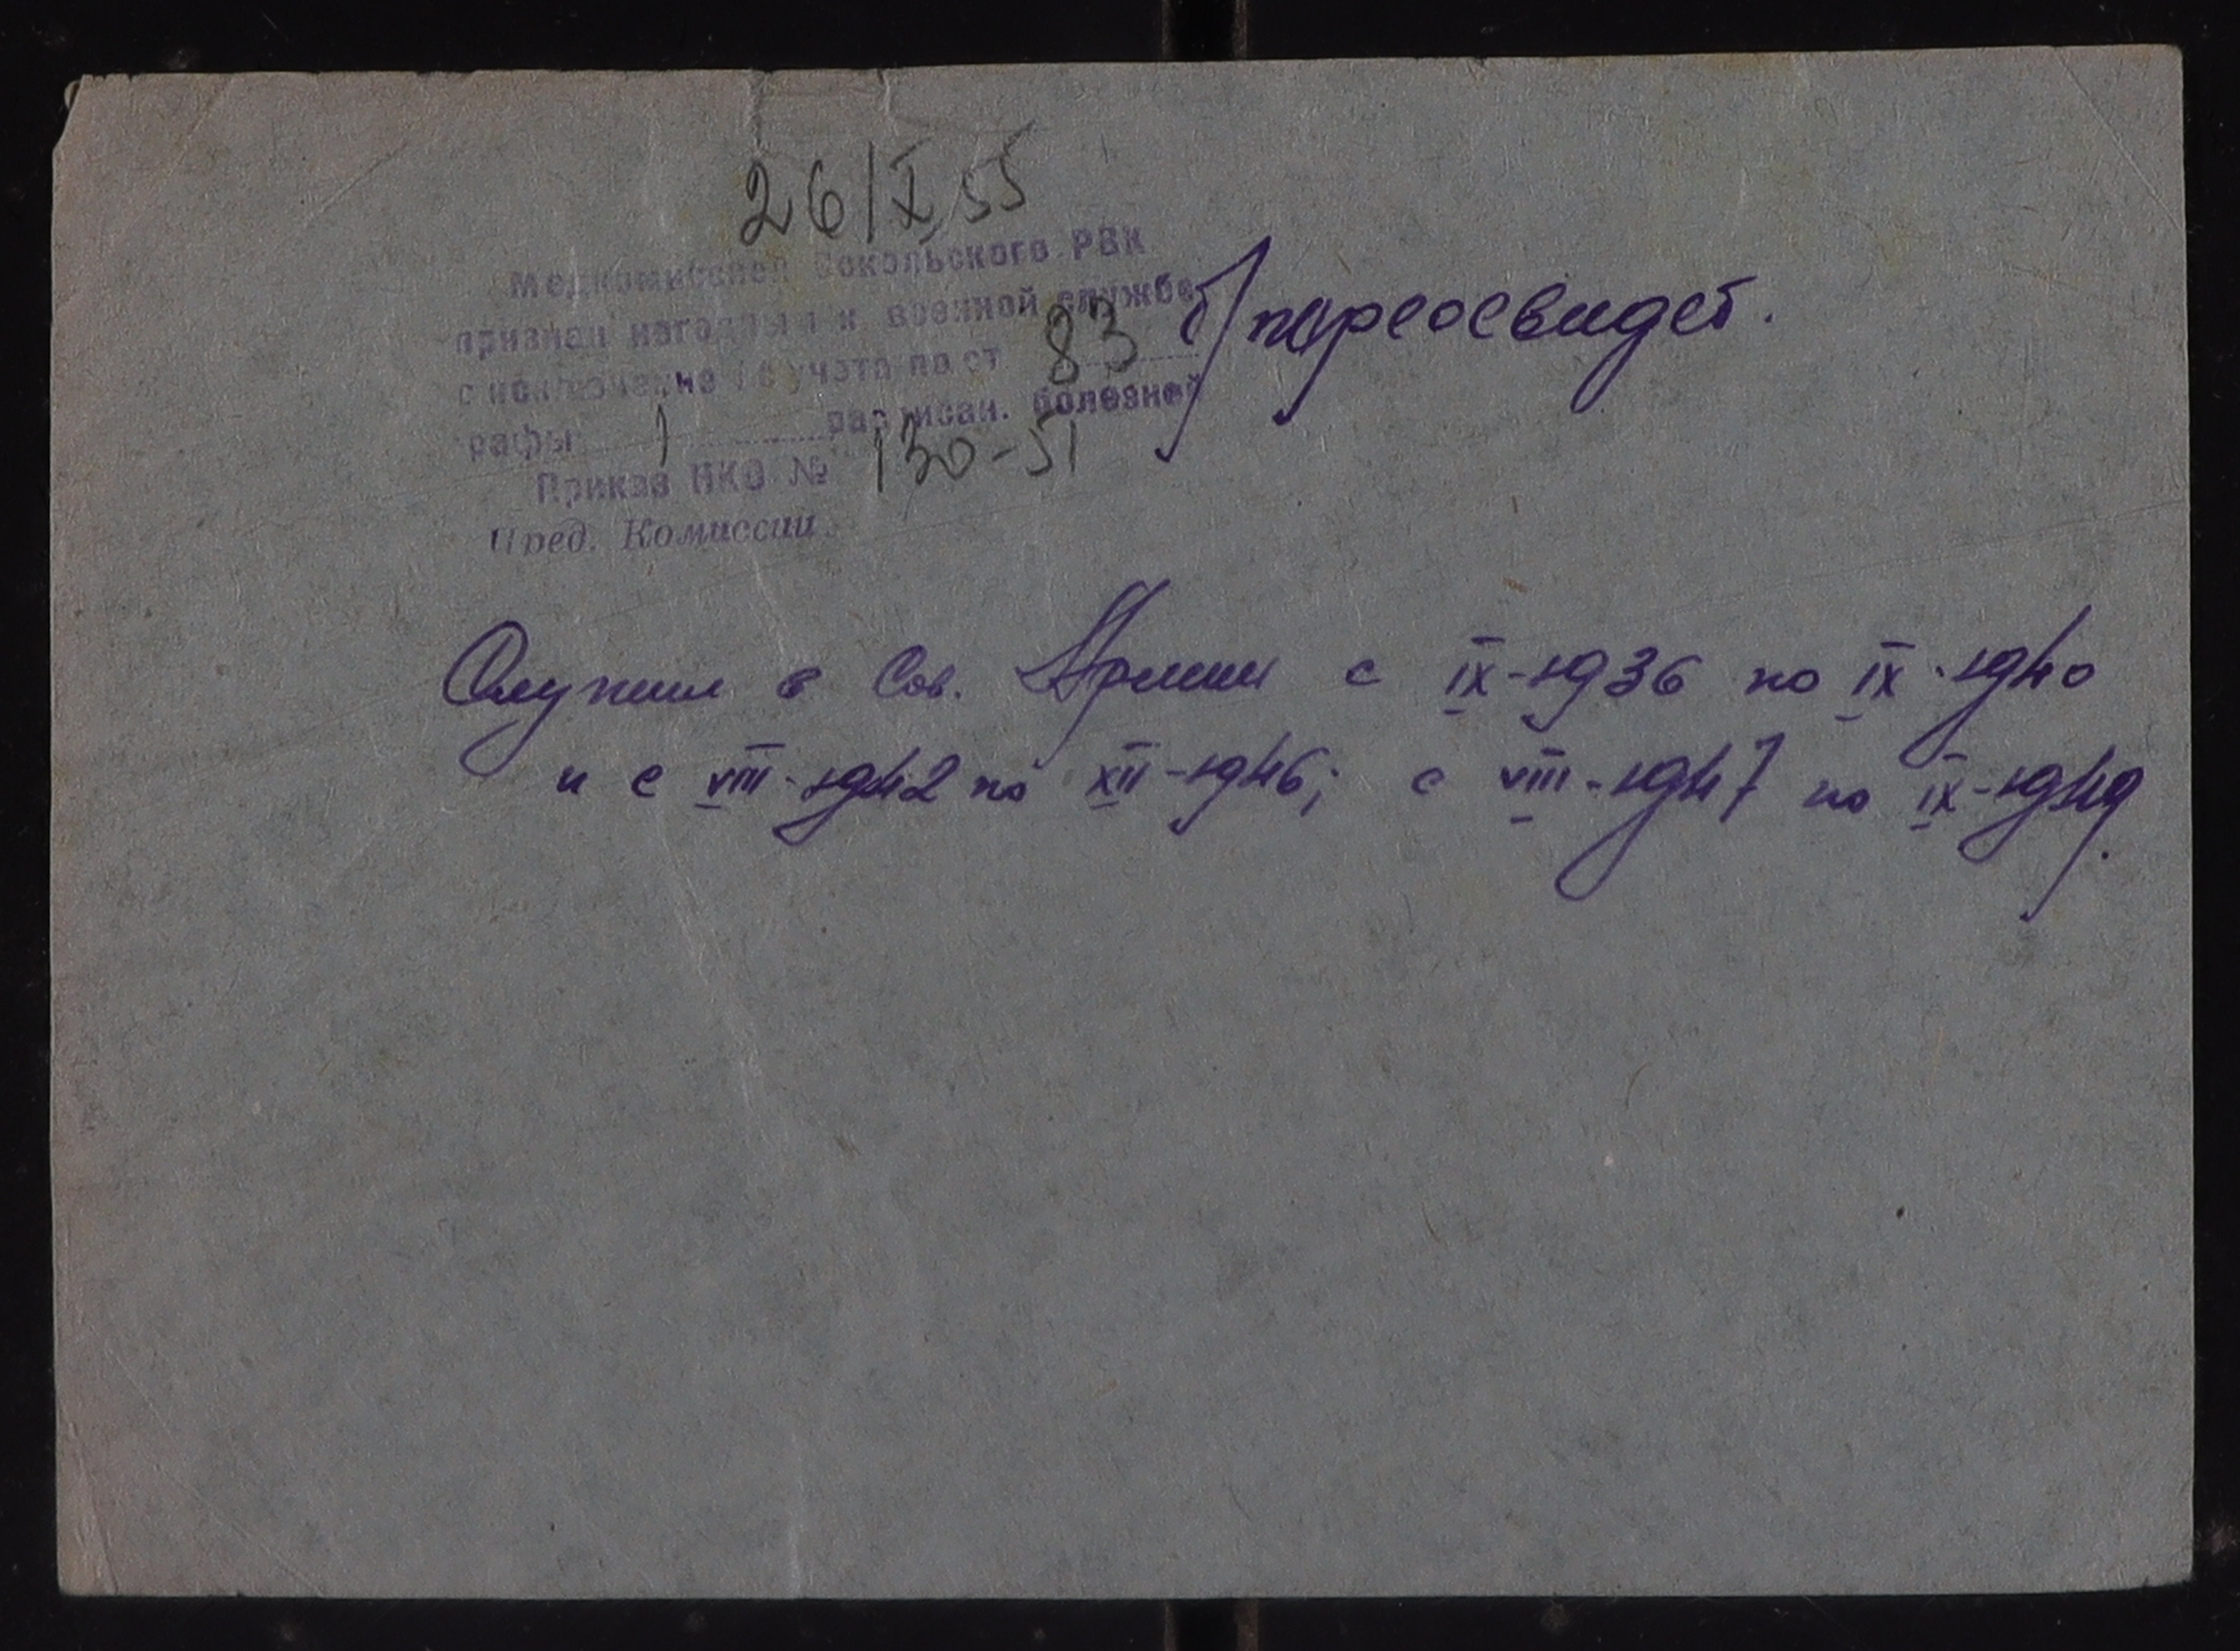 26/X 55
Медкомиссией Сокольского РВК
признан негодным к военной службе
с исключением с учета по ст 83 б/переосвидет.
графы 1 расписан. болезней
Приказ НКО № 130-51
Пред. Комиссии
Служил в Сов. Армии с IX-1936 по IX-1940
и с VIII-1942 по XII-1946; с VIII-1947 по IX-1949.